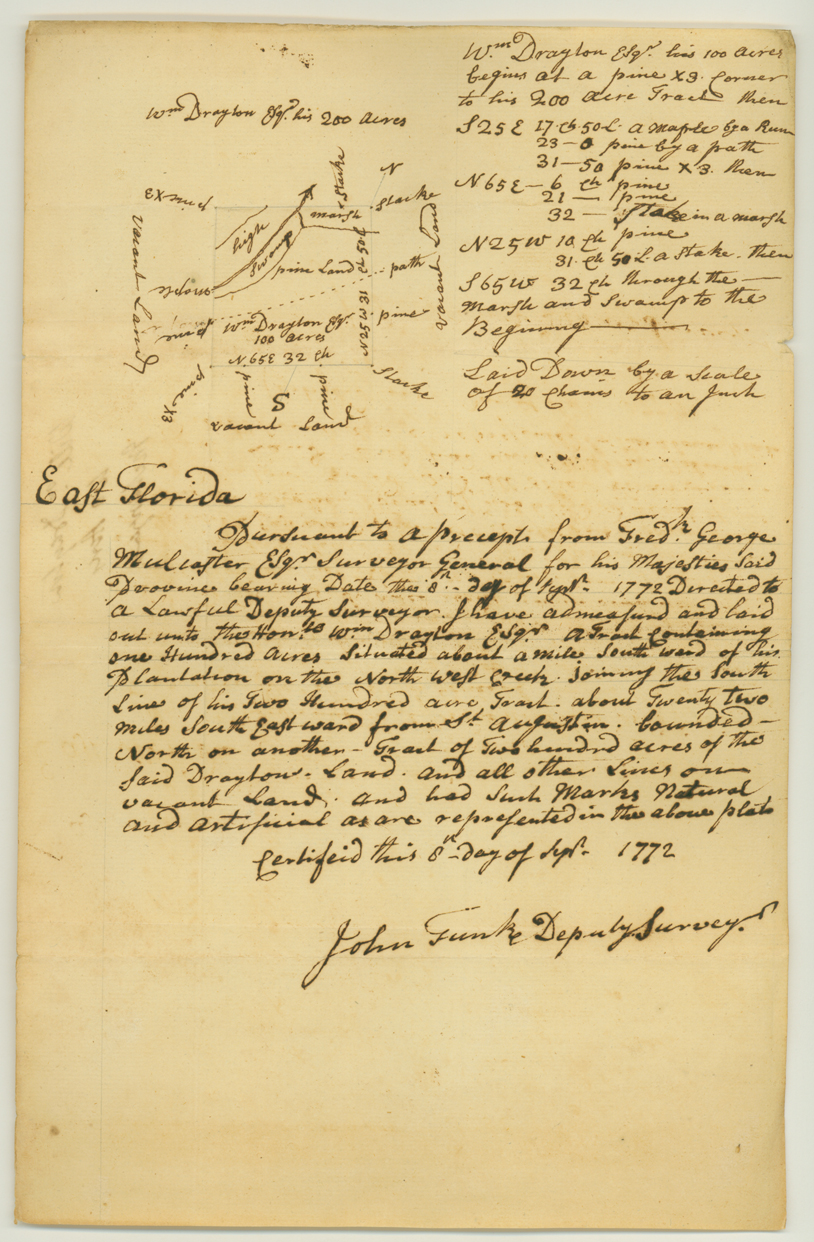 Wm Drayton Esqr his 200 Acres
N
Stacke
3X pine
marsh
Stacke
high
swamp
Vacant Land
pine Land
path
Vacant Land
maple
pine
Wm Drayton Esqr
100 acres
pine
N25W 31 Ch 50 L
N65E 32 Ch
Stacke
pine X3
pine
pine
S
vacant Land
Wm Drayton Esqr his 100 Acres
begins at a pine X3 Corner
to his 200 Acre Tract then
S25E 17 Ch 50 L a maple by a Run
23 — 0 pine by a path
31 — 50 pine X3 then
N65E — 6 Ch pine
21 — pine
32 — Stake in a marsh
N25W 10 Ch pine
31 Ch 50 L a Stake then
S65W 32 Ch through the —
Marsh and Swamp to the
Begining
Laid Down by a Scale
of 20 Chains to an Inch
East Florida
Pursuant to a precept from Fredk George
Mulcaster Esqr Surveyor General for his Majesties Said
Province bearing Date this 8th day of Sept 1772 Directed to
a Lawful Deputy Surveyor I have admeasurd and laid
out unto the Honble Wm Drayton Esqr A Tract Containing
one Hundred Acres Situated about a mile Southward of his
Plantation on the North west Creek Joining the South
Line of his Two Hundred acre Tract about Twenty two
miles South Eastward from St Augustin bounded —
North on another Tract of Two hundred acres of the
Said Drayton Land and all other Lines on
vacant Land and had Such Marks Natural
and artificial as are represented in the above plat
Certifeid this 8th Day of Sept 1772
John Funk Deputy Surveyr